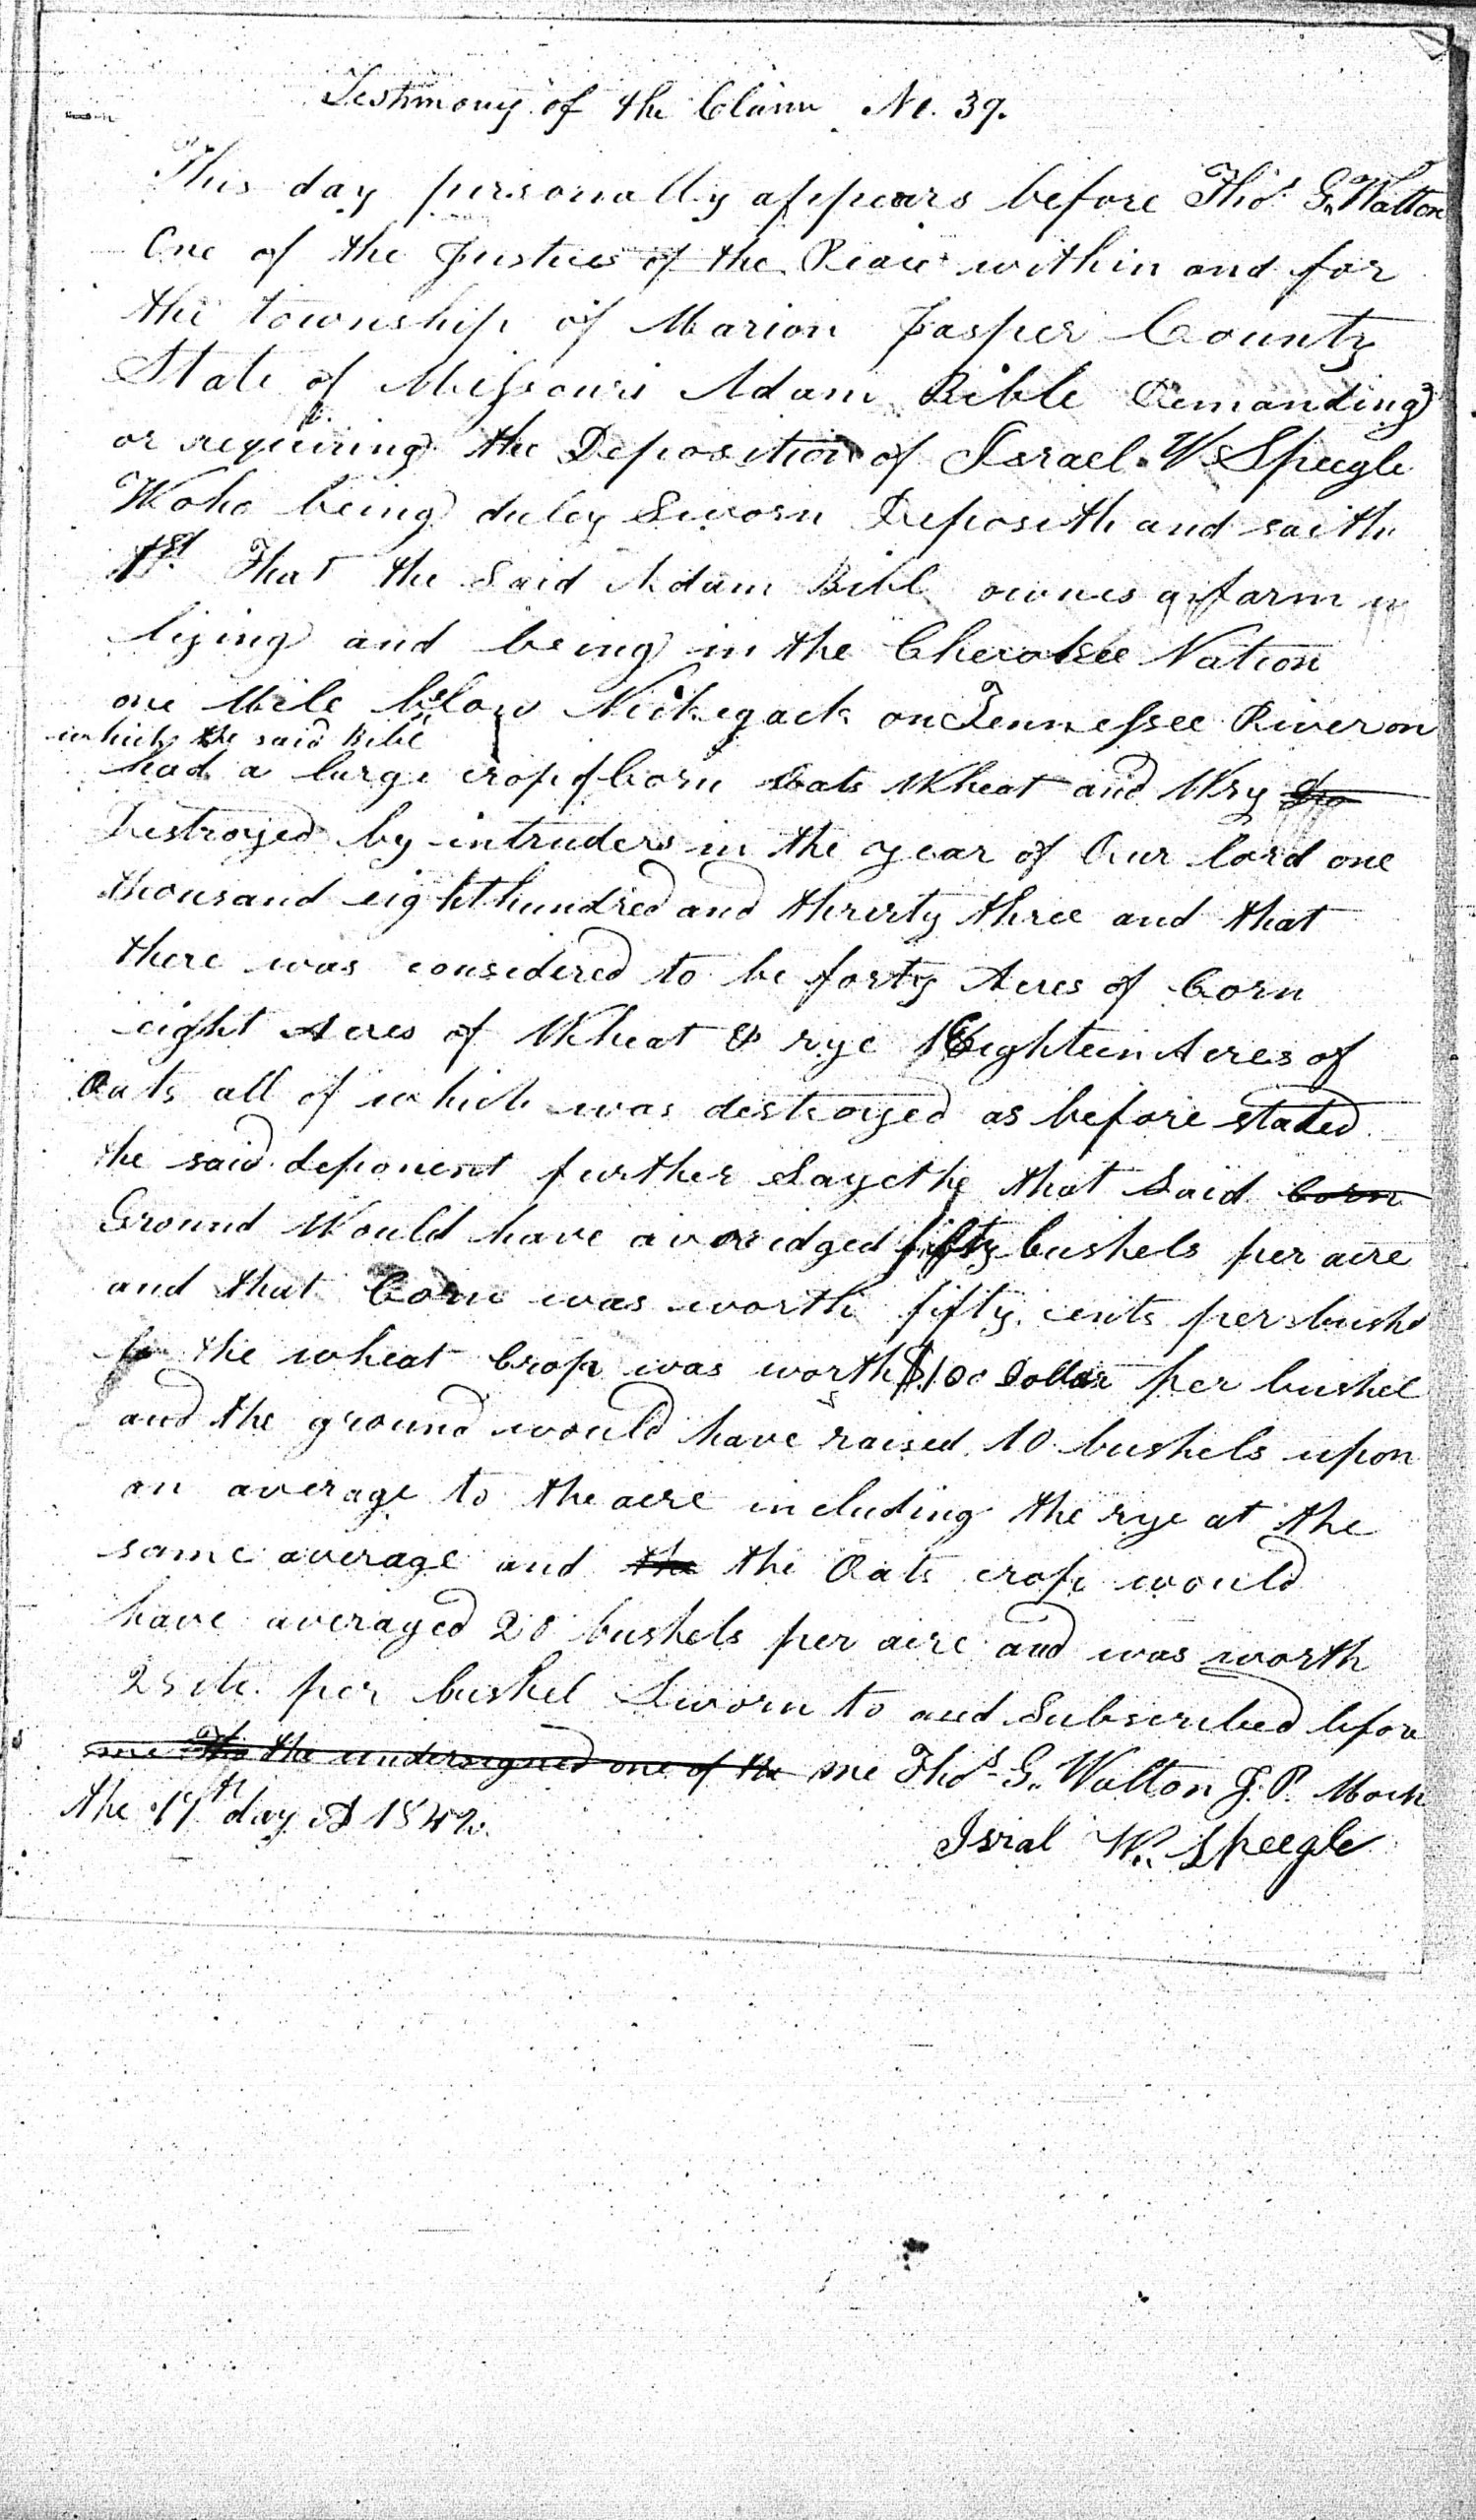 Testimony of the Claim No. 39.
This day personally appears before Thos. G. Walton
One of the Justices of the Peace within and for
the township of Marion Jasper County
State of Missouri Adam Bible Demanding
or requiring the Deposition of Israel W Speegle
Who being duley Sworn Deposeth and saith
1st. That the Said Adam Bibl ownes a farm
lying and being in the Cherokee Nation
one Mile below Nickegack on Tennessee River on
which the said Bible
had a large crop of Corn Oats Wheat and Wry
Destroyed by intruders in the year of Our lord one
thousand eight hundred and thrirty three and that
there was considered to be forty Acres of Corn
eight Acres of Wheat & rye 18 eighteen Acres of
Oats all of which was destroyed as before stated
the said deponent further Sayethe that Said Corn
Ground Would have averedged fifty bushels per acre
and that Corn was worth fifty cents per bushel
the wheat Crop was worth $1.00 Dollar per bushel
and the ground would have raised 10 bushels upon
an average to the acre including the rye at the
same average and the the Oats crop would
have averaged 20 bushels per acre and was worth
25 cts. per bushel Sworn to and Subscribed before
me Tho the undersigned one of the me Thos. G. Walton J. P. March
the 17th day AD 1842.
Isral W. Speegle